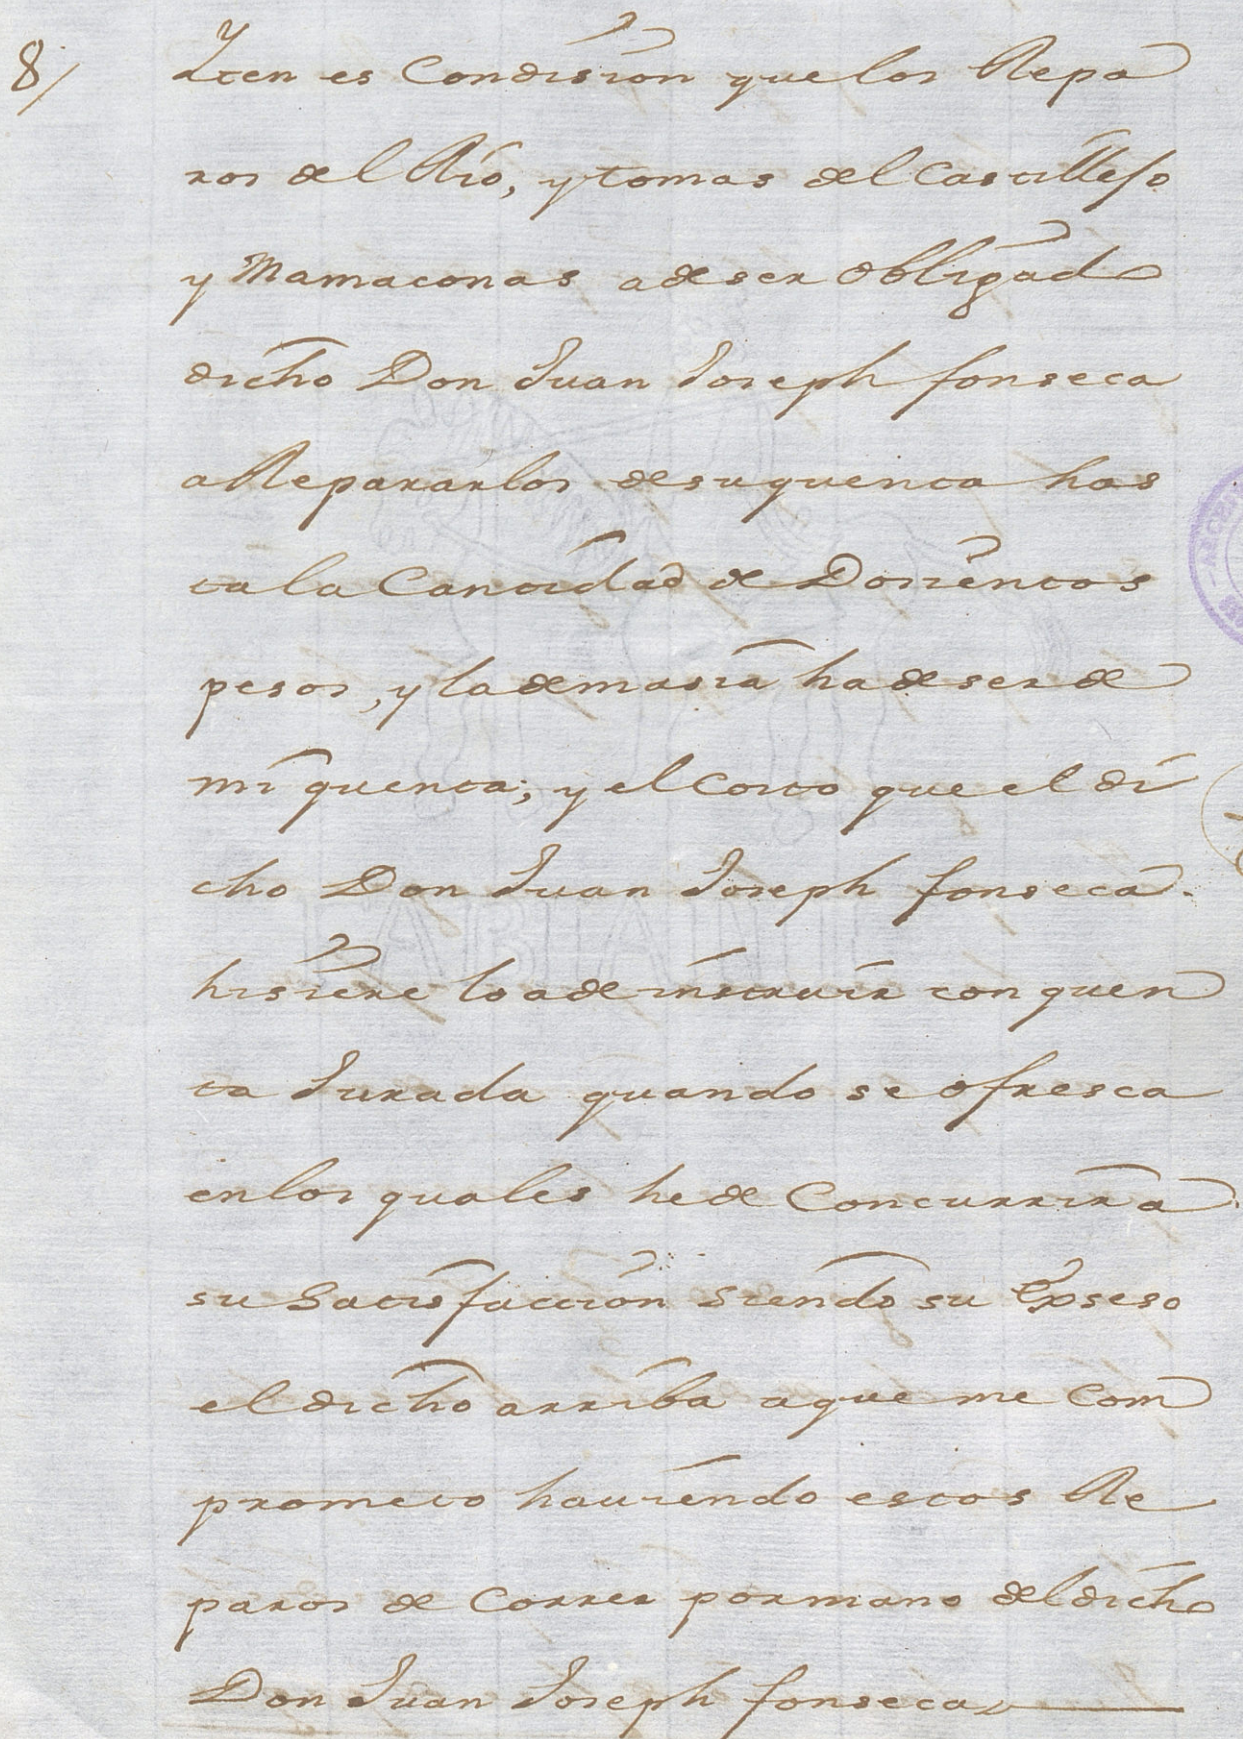 8/ Yten es Condision que los Repa
ros del Rio, y tomas del Castillejo
y Mamaconas a de ser obligado
dicho Don Juan Joseph fonseca
a Repararlos de su quenta has
ta la Cantidad de Dosientos
pesos, y la demasia ha de ser de
mi quenta; y el Costo que el di
cho Don Juan Joseph fonseca
hisiere lo a de instruir con quen
ta Jurada quando se ofresca
en los quales he de Concurrir a
su Satisfaccion siendo su Exseso
el dicho arriba a que me Com
prometo haviendo estos Re
paros de Correr por mano del dicho
Don Juan Joseph fonseca